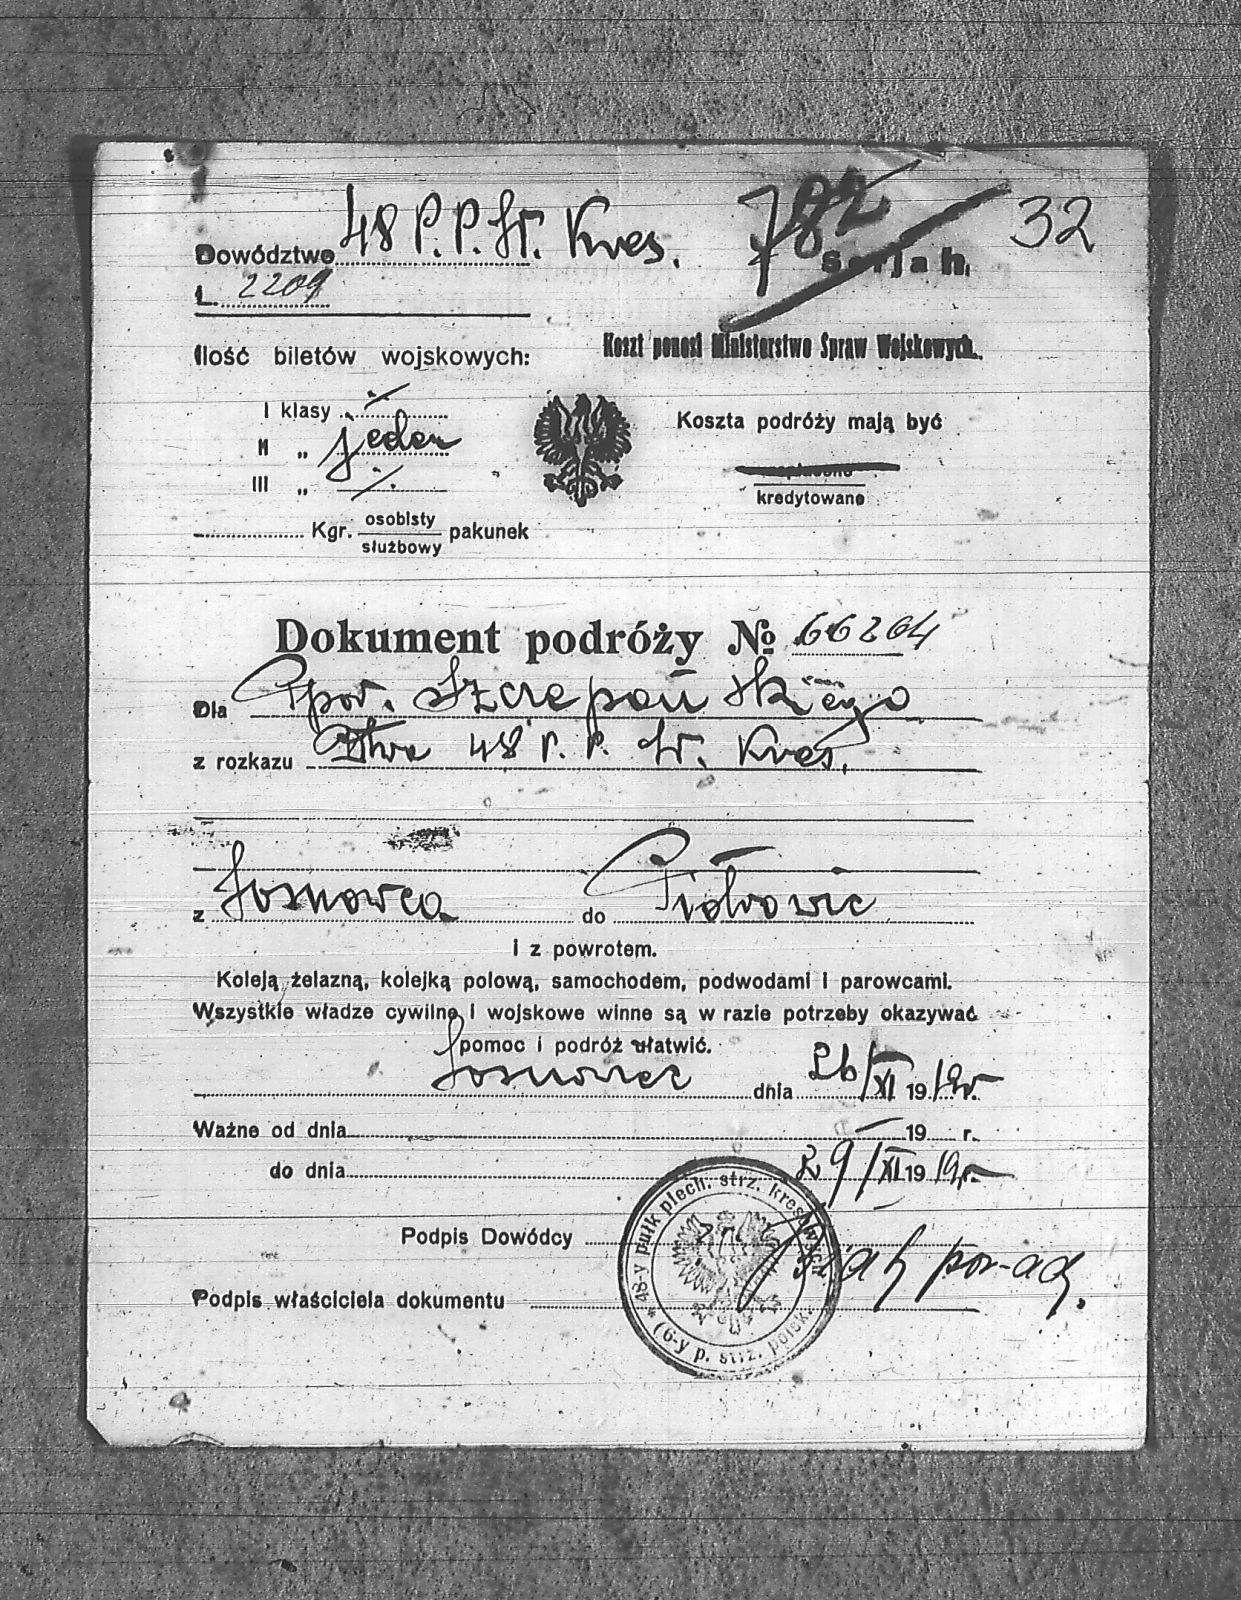 Dowództwo 48 P. P. St. Kres. 782 32
Serja h.
L 2209
Koszt ponosi Ministerstwo Spraw Wojskowych.
Ilość biletów wojskowych:
I klasy ./.
II „ jeden
III „ ./.
Koszta podróży mają być
zapłacone
kredytowane
Kgr. osobisty
służbowy pakunek
Dokument podróży № 66204
Dla Ppor. Szczepańskiego
z rozkazu Dtwa 48 P. P. St. Kres.
z Sosnowca do Piotrowic
i z powrotem.
Koleją żelazną, kolejką polową, samochodem, podwodami i parowcami.
Wszystkie władze cywilne i wojskowe winne są w razie potrzeby okazywać
pomoc i podróż ułatwić.
Sosnowiec dnia 26/XI 1919 r.
Ważne od dnia — 19 r.
do dnia 29/XI 1919 r.
Podpis Dowódcy
por-ad.
Podpis właściciela dokumentu
48-y pułk piech. strz. kresowych
* (6-y p. strz. polsk.